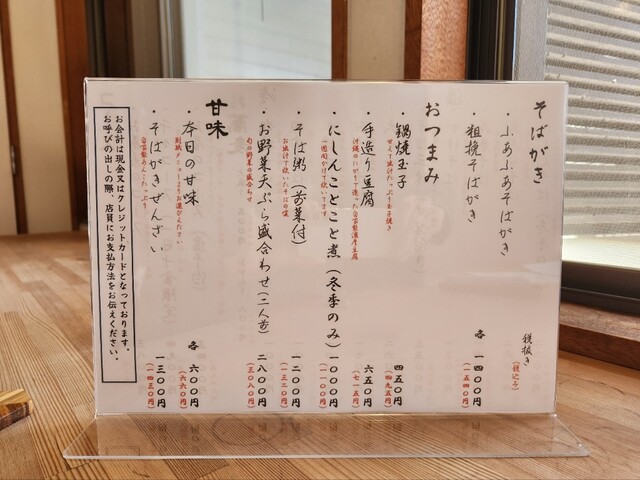 そばがき
・ふあふあそばがき
・粗挽そばがき
各 一四〇〇円
(一五四〇円)
税抜き
(税込み)
おつまみ
・鍋焼玉子
四五〇円
(四九五円)
・手造り豆腐
六五〇円
(七一五円)
・にしんことこと煮(冬季のみ)
一〇〇〇円
(一一〇〇円)
・そば粥(前菜付)
一二〇〇円
(一三二〇円)
・お野菜天ぷら盛合わせ(二人前)
旬の野菜の盛合わせ
二八〇〇円
(三〇八〇円)
甘味
・本日の甘味
別紙メニューよりお選びください
各 六〇〇円
(六六〇円)
・そばがきぜんざい
一三〇〇円
(一四三〇円)
お会計は現金又はクレジットカードとなっております。
お呼びの出しの際、店員にお支払方法をお伝えください。